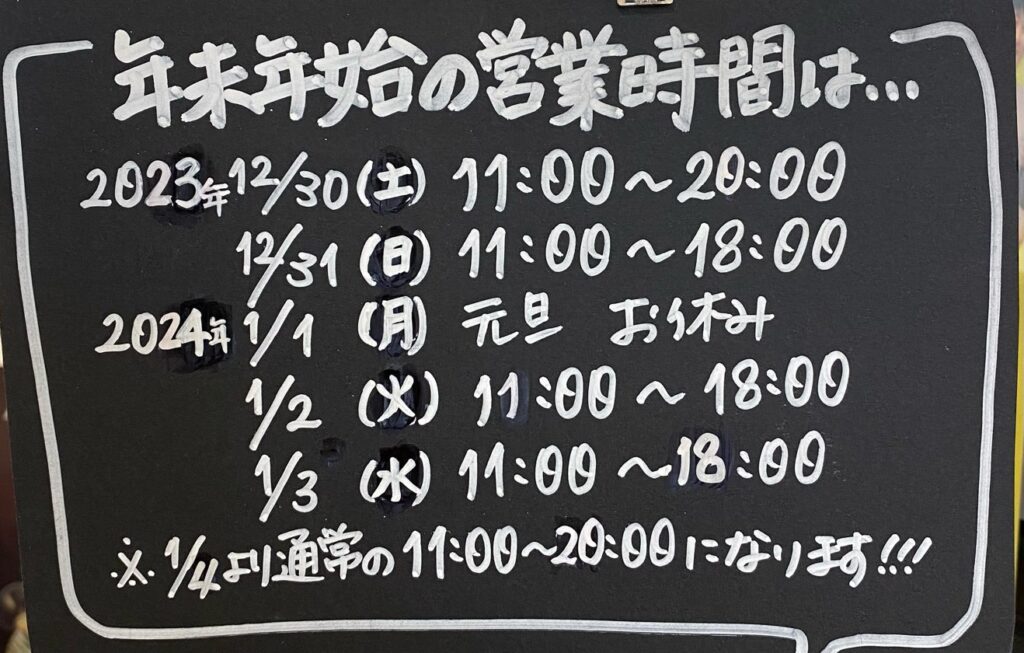 年末年始の営業時間は…
2023年 12/30(土) 11:00～20:00
12/31(日) 11:00～18:00
2024年 1/1(月) 元旦 お休み
1/2(火) 11:00～18:00
1/3(水) 11:00～18:00
※1/4より通常の11:00～20:00になります!!!